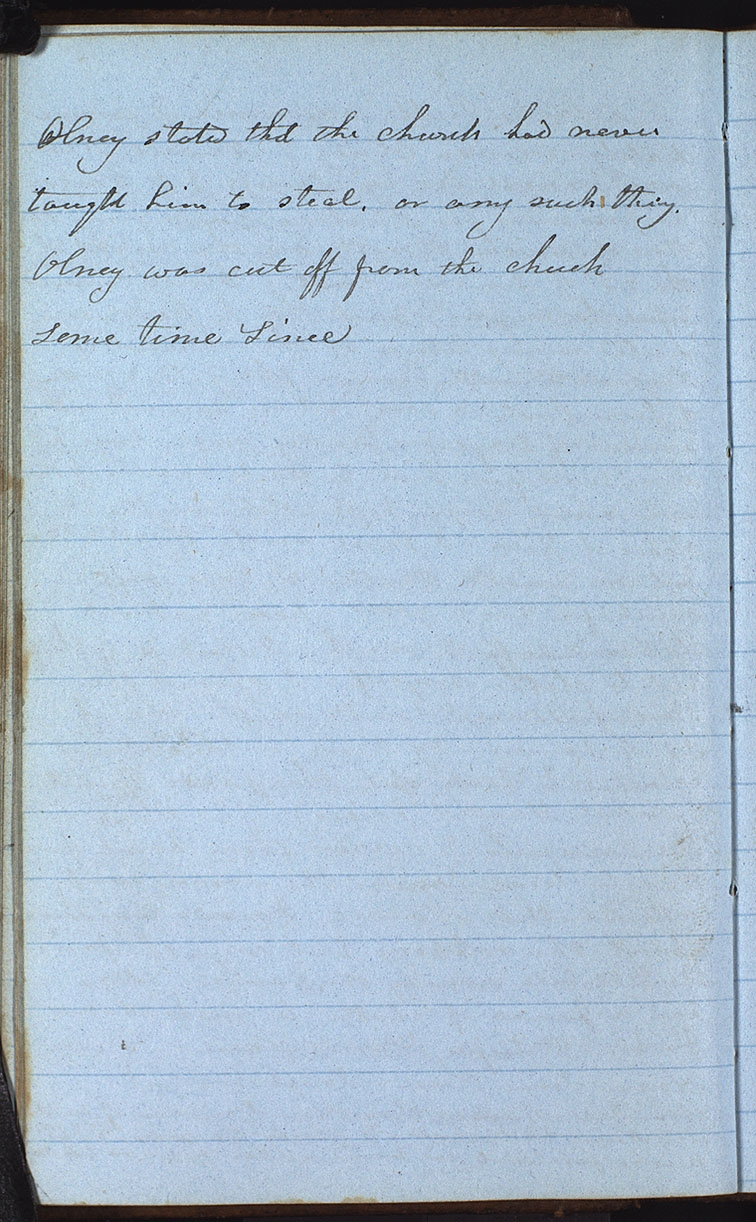 Olney stated that the church had never
taught him to steal, or any such thing.
Olney was cut off from the chuch
some time since